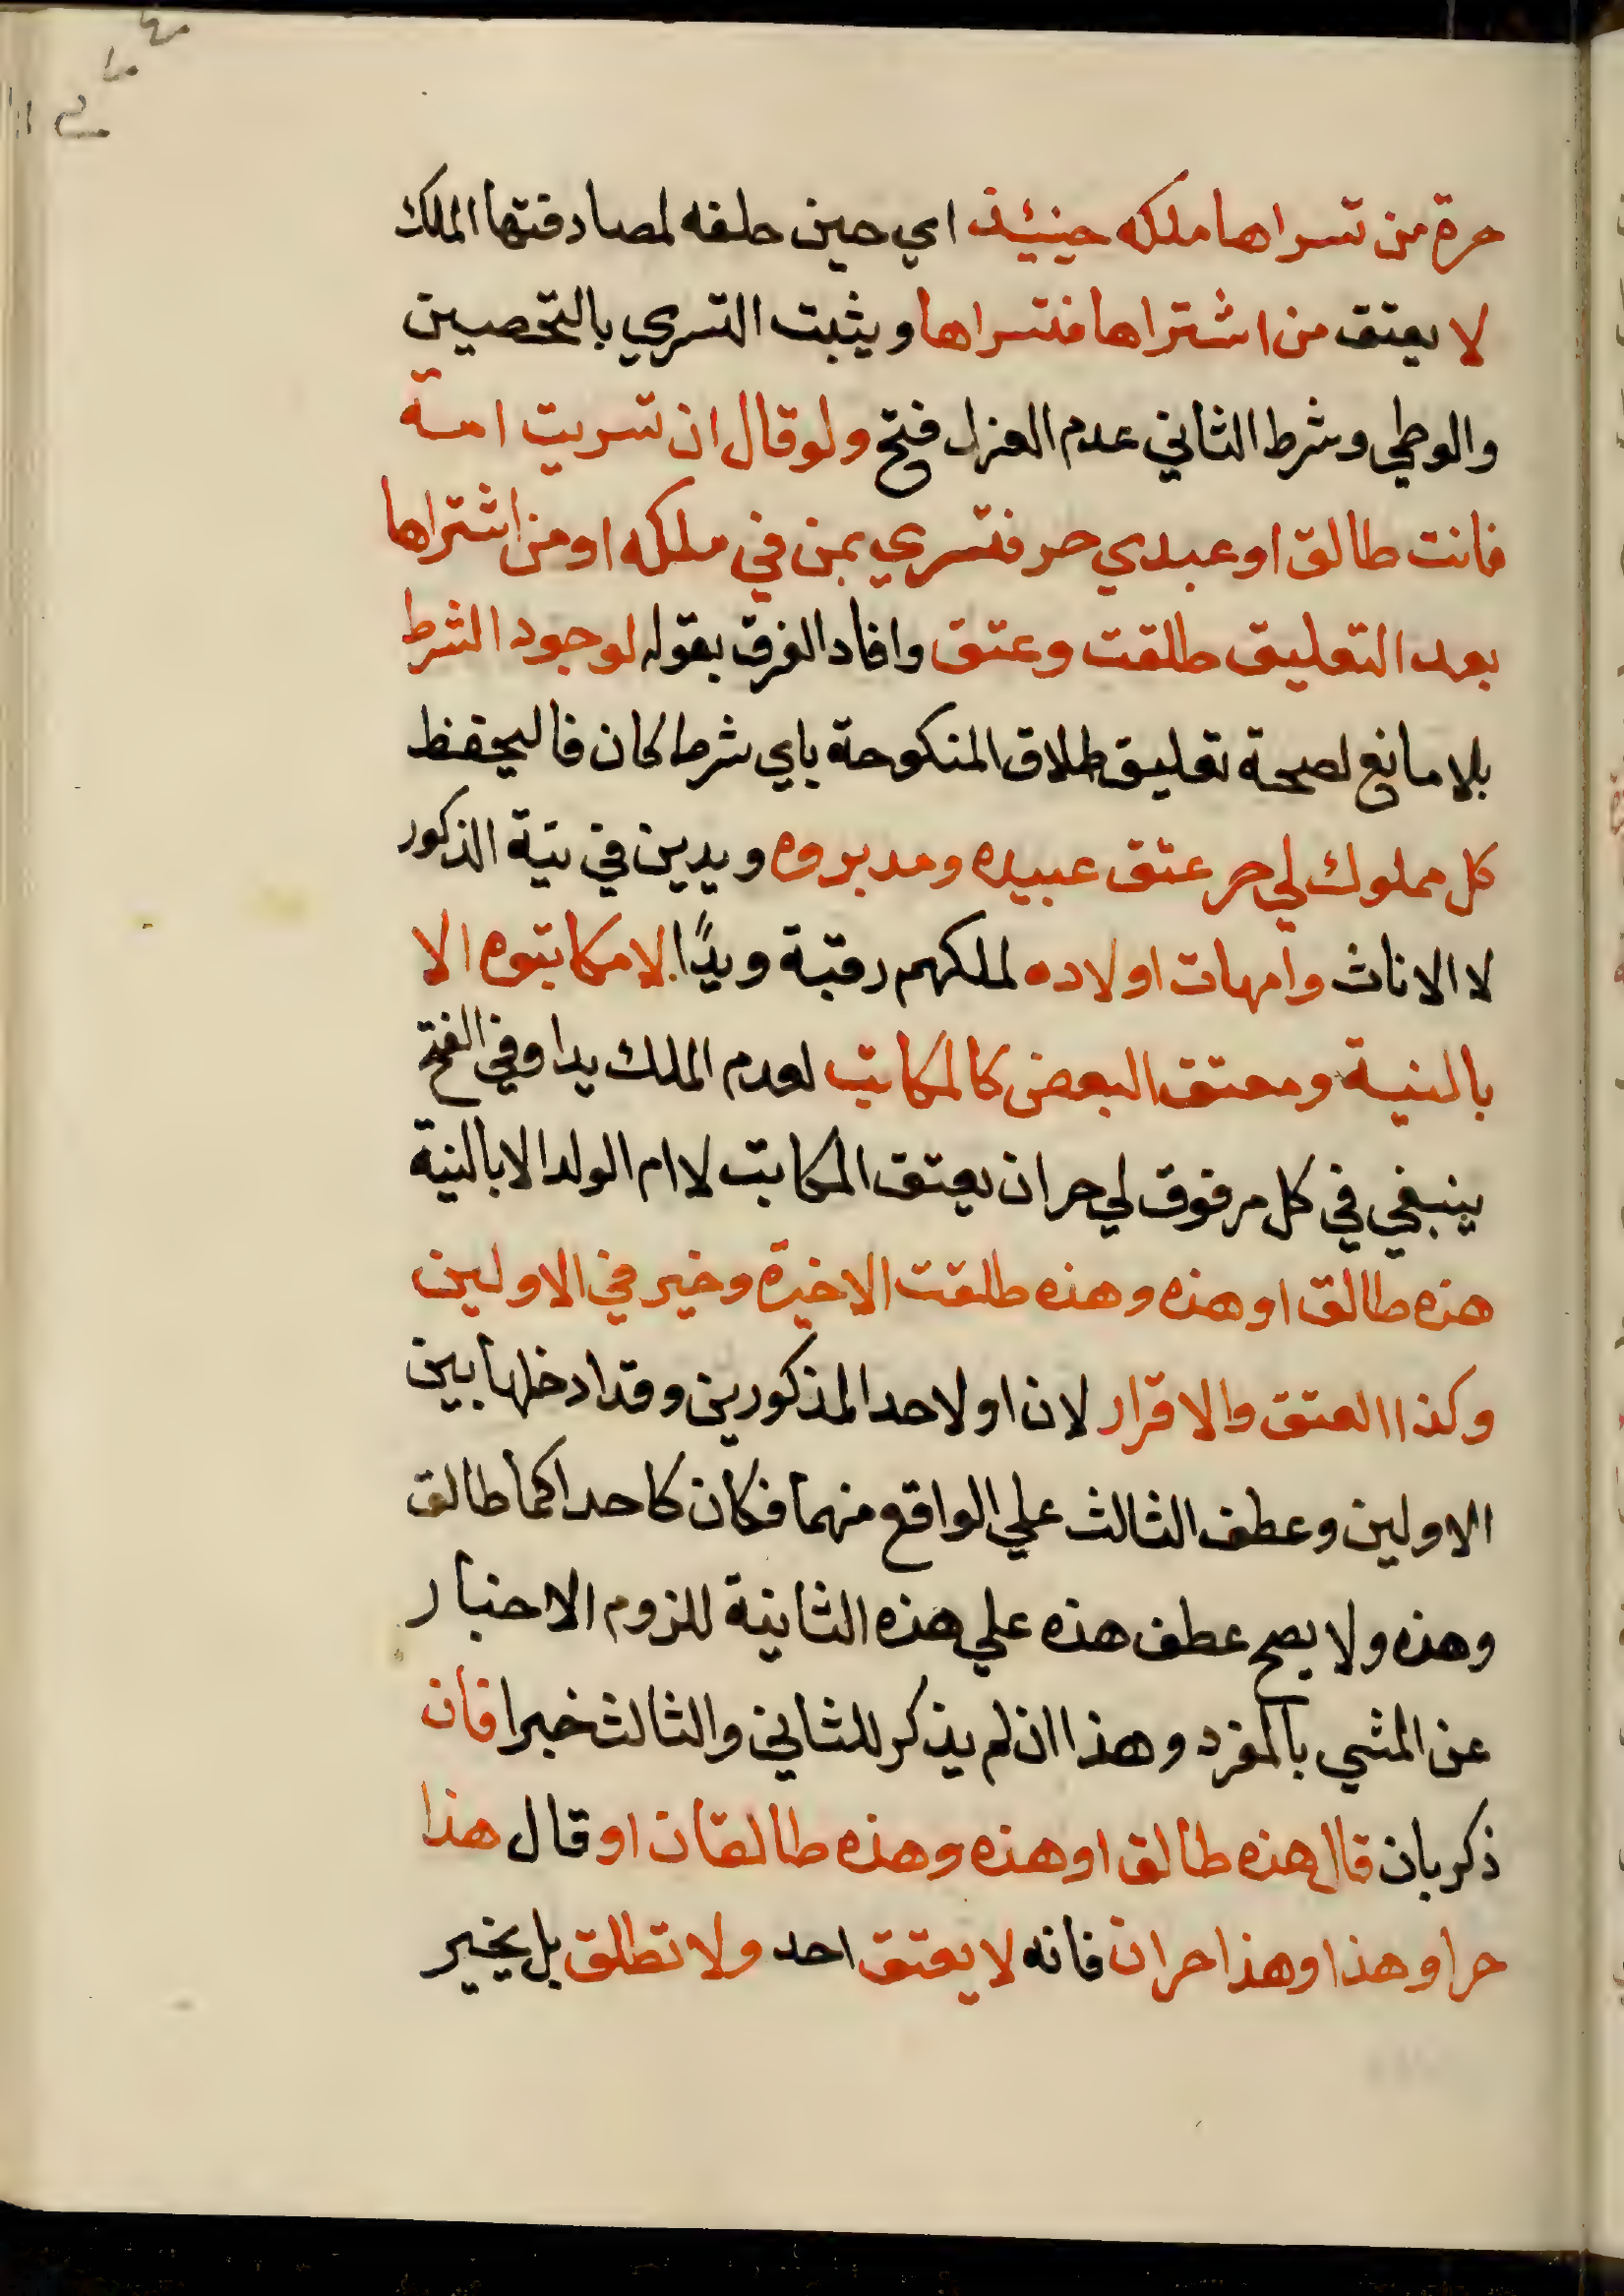 حرة من تسراها ملكه حينئذ اي حين حلفه لمصادفتها الملك
لا يعتق من اشتراها فتسراها ويثبت التسري بالتحصين
والوطي وشرط الثاني عدم العزل فتح ولو قال ان تسريت امة
فانت طالق او عبدي حر فتسري بمن في ملكه او من اشتراها
بعد التعليق طلقت وعتق وافاد الفرق بقوله لوجود الشرط
بلا مانع لصحة تعليق طلاق المنكوحة باي شرط كان فاليحفظ
كل مملوك لي حر عتق عبيده ومدبروه ويدين في نية الذكور
لا الاناث وامهات اولاده لملكهم رقبة ويدًا لا مكاتبوه الا
بالنية ومعتق البعض كالمكاتب لعدم الملك يدا وفي الفتح
ينبغي في كل مرقوق لي حر ان يعتق المكاتب لا ام الولد الا بالنية
هذه طالق او هذه وهذه طلقت الاخيرة وخير في الاولين
وكذا العتق والاقرار لان او لاحد المذكورين وقد ادخلها بين
الاولين وعطف الثالث علي الواقع منهما فكان كاحداكما طالق
وهذه ولا يصح عطف هذه علي هذه الثانية للزوم الاخبار
عن المثني بالمفرد وهذا ان لم يذكر للثاني والثالث خبرا فان
ذكر بان قال هذه طالق او هذه وهذه طالقان او قال هذا
حر او هذا وهذا حران فانه لا يعتق احد ولا تطلق بل يخير